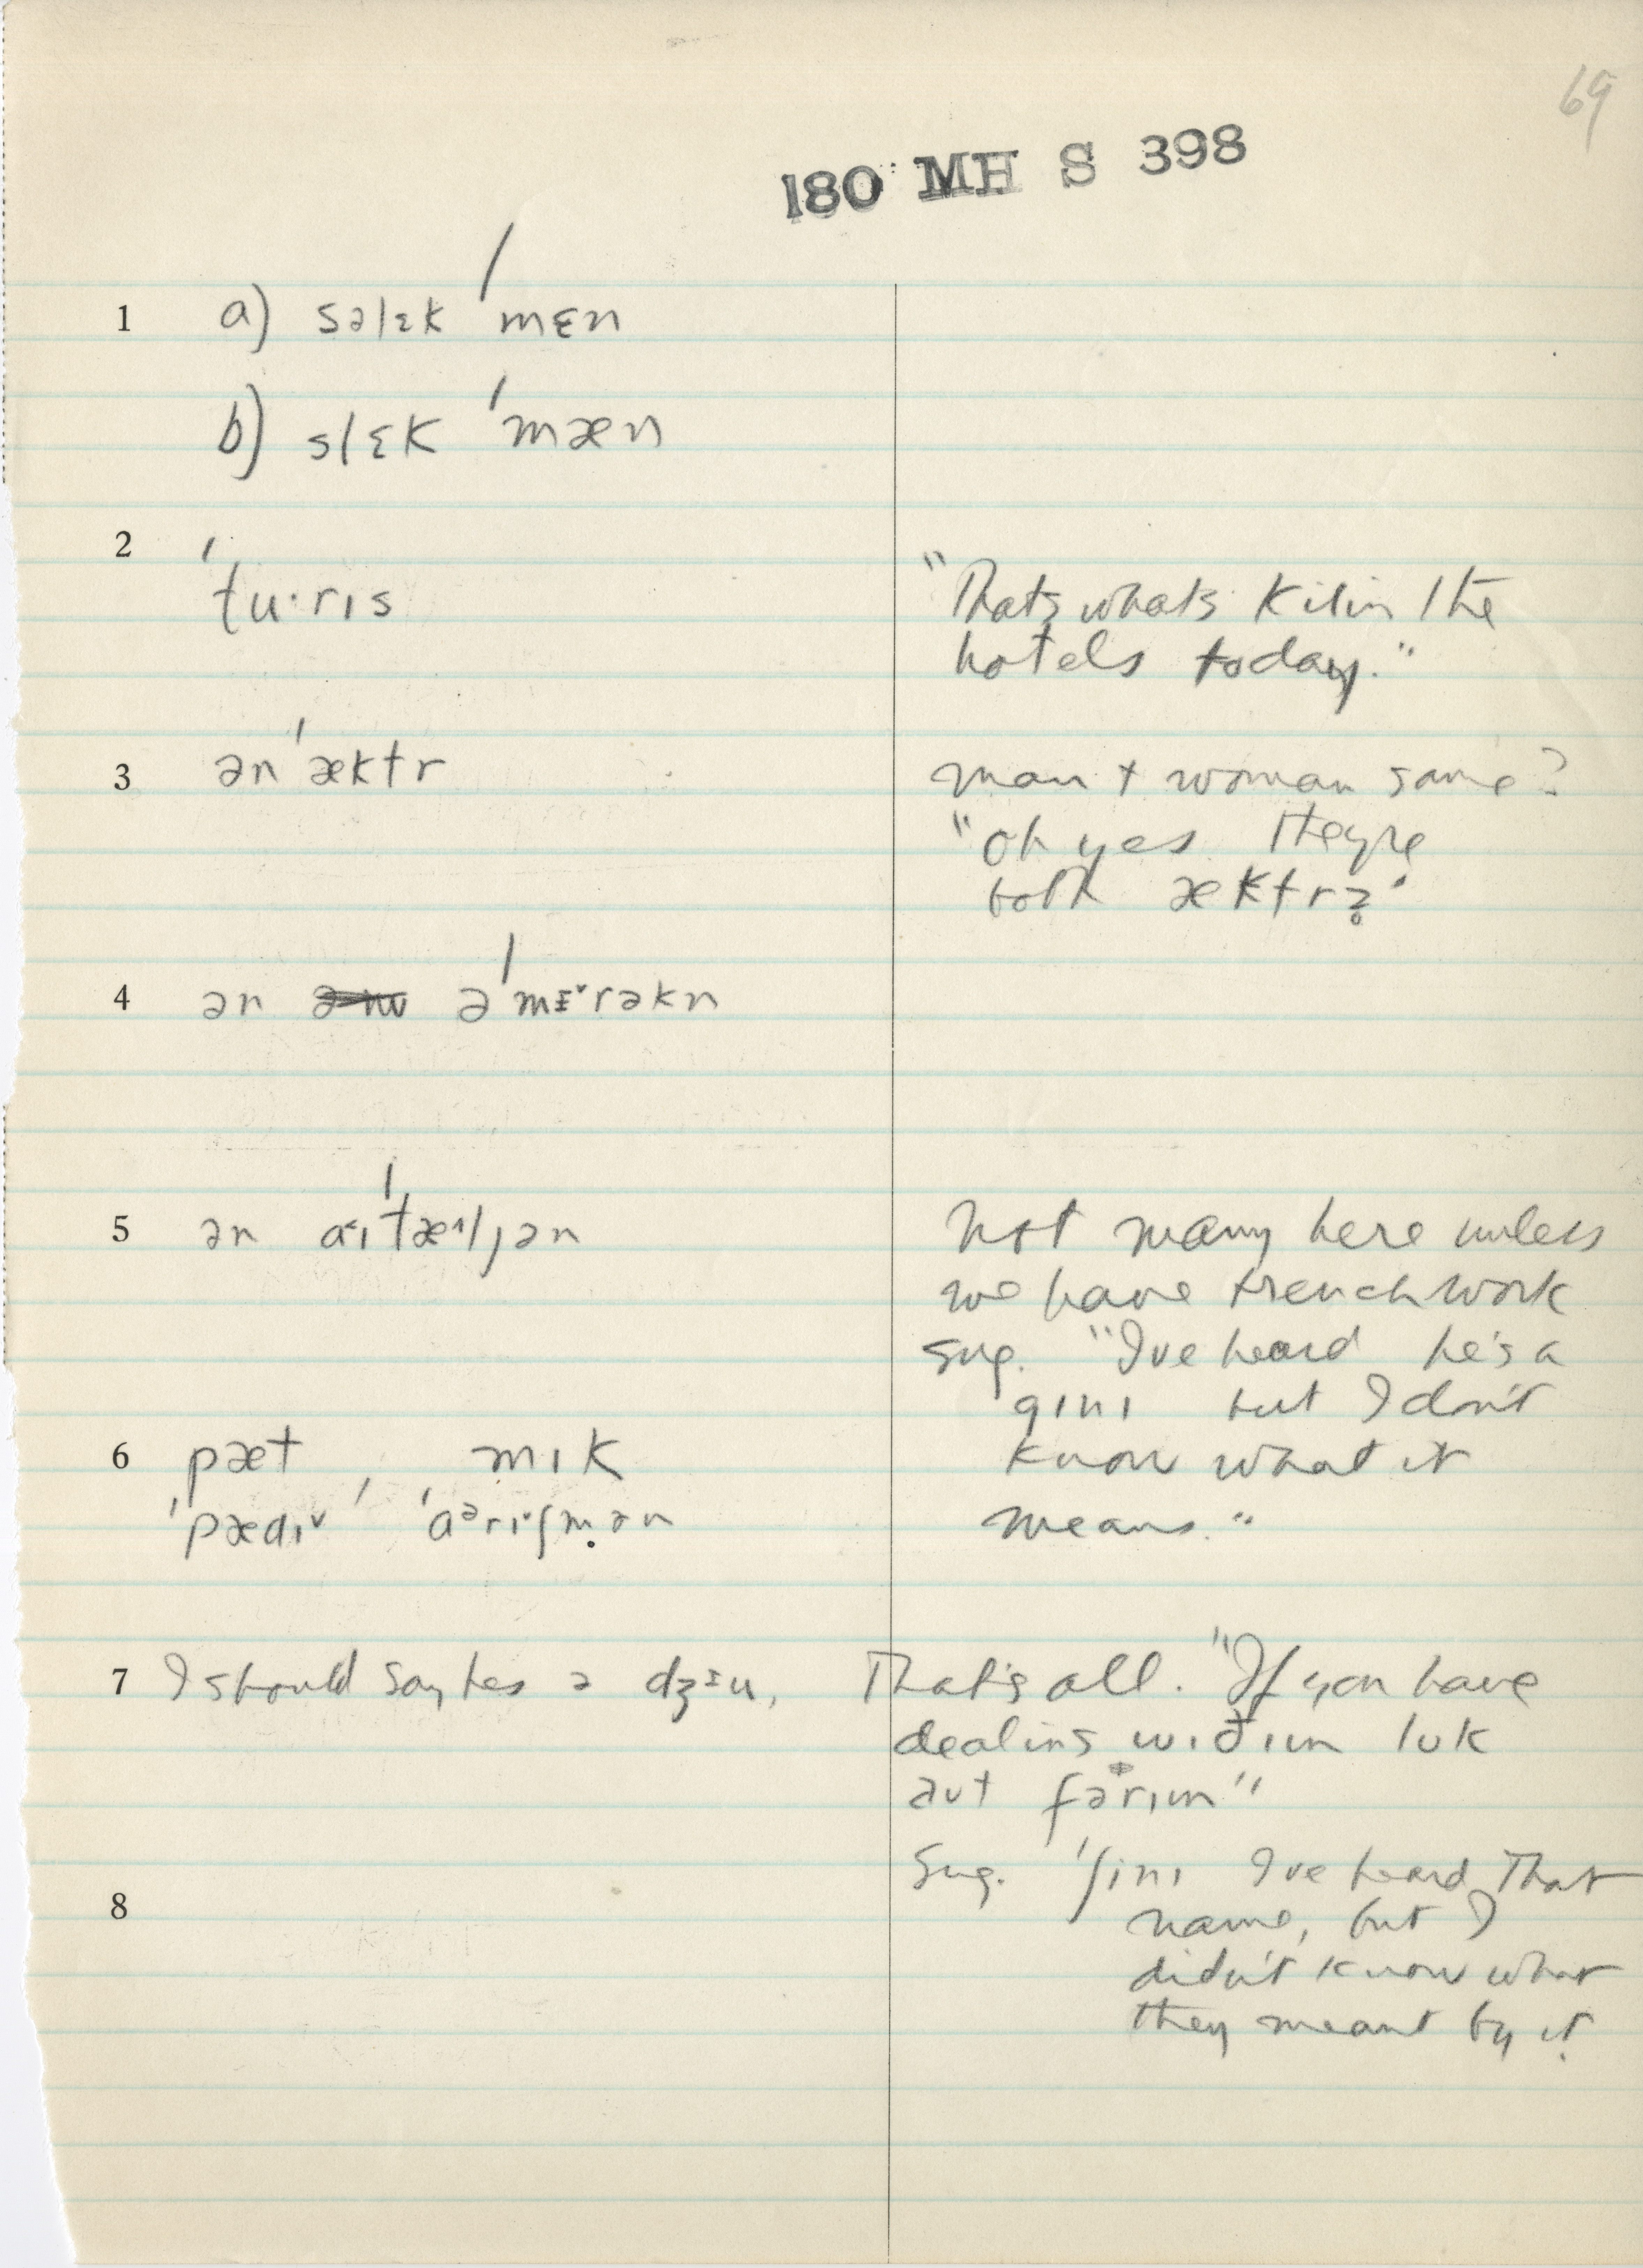 69
180 MH S 398
1 a) səlɛk ˈmɛn
b) slɛk ˈmæn
2 ˈtu·rɪs
"Thats whats Killin the
hotels today."
3 ən ˈæktr
man + woman same?
"oh yes they're
both æktrz̥"
4 ən əˈmɪ˅rəkn
5 ən aˈɪˈtæ^ljən
Not many here unless
we have trench work
Sug. "I've heard he's a
gɪnɪ but I don't
know what it
means."
6 pæt, mɪk
ˈpædɪ˅ ˈaᵊrɪ˅ʃmən
7 I should say hes ə dʒɪu,
That's all. "If you have
dealins wɪðɪm luk
aut fərɪm"
Sug. ˈʃinɪ I've heard that
name, but I
didn't know what
they meant by it.
8